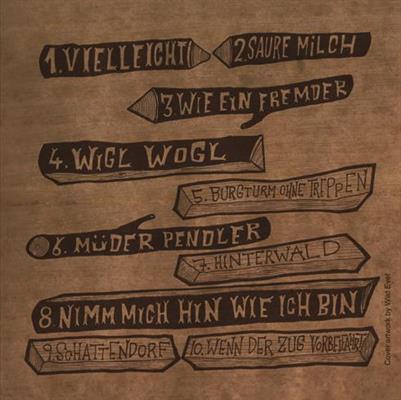 1. VIELLEICHT
2. SAURE MILCH
3. WIE EIN FREMDER
4. WIGL WOGL
5. BURGTURM OHNE TREPPEN
6. MÜDER PENDLER
7. HINTERWALD
8. NIMM MICH HIN WIE ICH BIN
9. SCHATTENDORF
10. WENN DER ZUG VORBEIFÄHRT
Cover artwork by Wild Evel